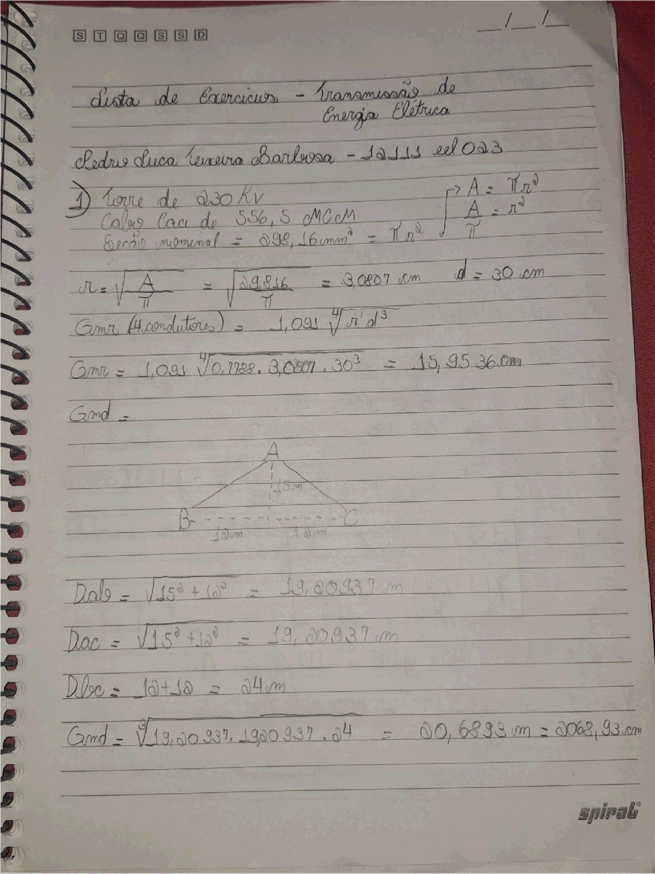 S T Q Q S S D
__/__/__
Lista de Exercícios - Transmissão de
Energia Elétrica
Pedro Luca Teixeira Barbosa - 12111 eel023
1) Torre de 230 KV
Cabo Caa de 556,5 MCM
Secão nominal = 298,16mm² = πr²
→ A = πr²
A/π = r²
r = √(A/π) = √(2,9816/π) = 3,0807 cm d = 30 cm
Gmr (4 condutores) = 1,091 ⁴√(r' d³)
Gmr = 1,091 ⁴√(0,7788 . 3,0807 . 30³) = 15,9536 cm
Gmd =
A
15m
B C
12m 12m
Dab = √(15² + 12²) = 19,20937 m
Dac = √(15² + 12²) = 19,20937 m
Dbc = 12+12 = 24m
Gmd = ³√(19,20937 . 19,20937 . 24) = 20,6893 m = 2068,93 cm
spiral